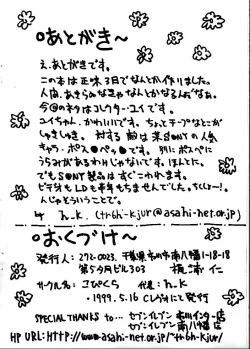 ○あとがき～
え、あとがきです。
この本は正味3日でなんとか作りました。
人間、あきらめなきゃなんとかなるんだなぁ。
今回のネタはコレクター・ユイです。
ユイちゃん、かわいいです。
対する 敵は 某SONYの人気
キャラ・ポス●ペッ●です。別にポスペに
うらみがあるわけじゃないです。ほんとに。
でもSONY製品はすぐこわれます。
ビデオもLDも半年もちませんでした。ちくしょー!
んじゃそういうことで。
h.k. (tt6h-kjur@asahi-net.or.jp)
○おくづけ～
発行人: 272-0023、千葉県市川市南八幡1-18-18
第5夕月ビル303
サークル名: こぴぺくら 代表: h.k
・1999.5.16 CレヴォにZ発行
SPECIAL THANKS to... セブンイレブン 市川インター店
セブンイレブン 南八幡店
HP URL: HTTP://www.asahi-net.or.jp/~tt6h-kjur/